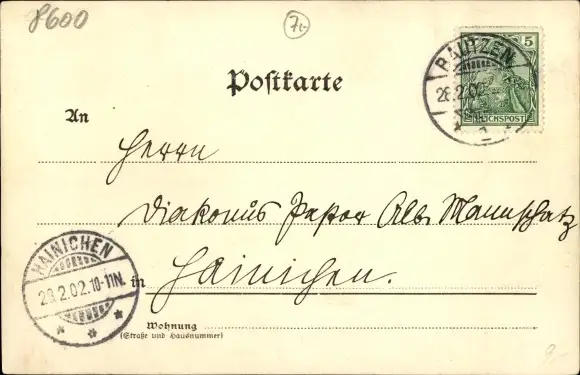 8600
7.-
5
REICHSPOST
BAUTZEN
28.2.02
Postkarte
An
Herrn
Diakonus Pastor Alb. Mannschatz
in Hainichen.
HAINICHEN
28.2.02.10-11N.
Wohnung
(Straße und Hausnummer)